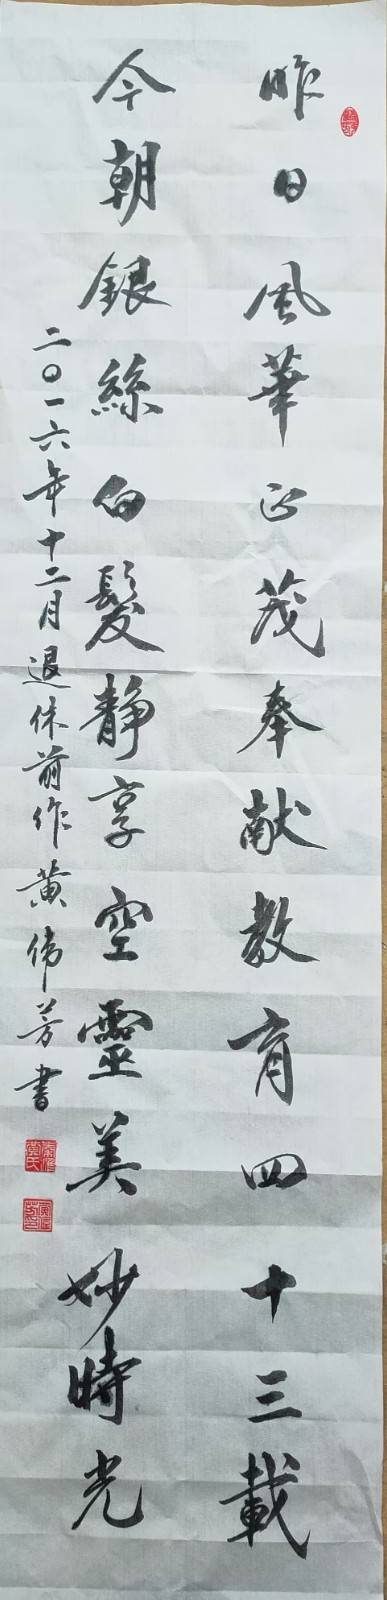 昨日風華正茂奉献教育四十三載
今朝銀絲白髮静享空靈美妙時光
二〇一六年十二月退休前作黄伟芳書